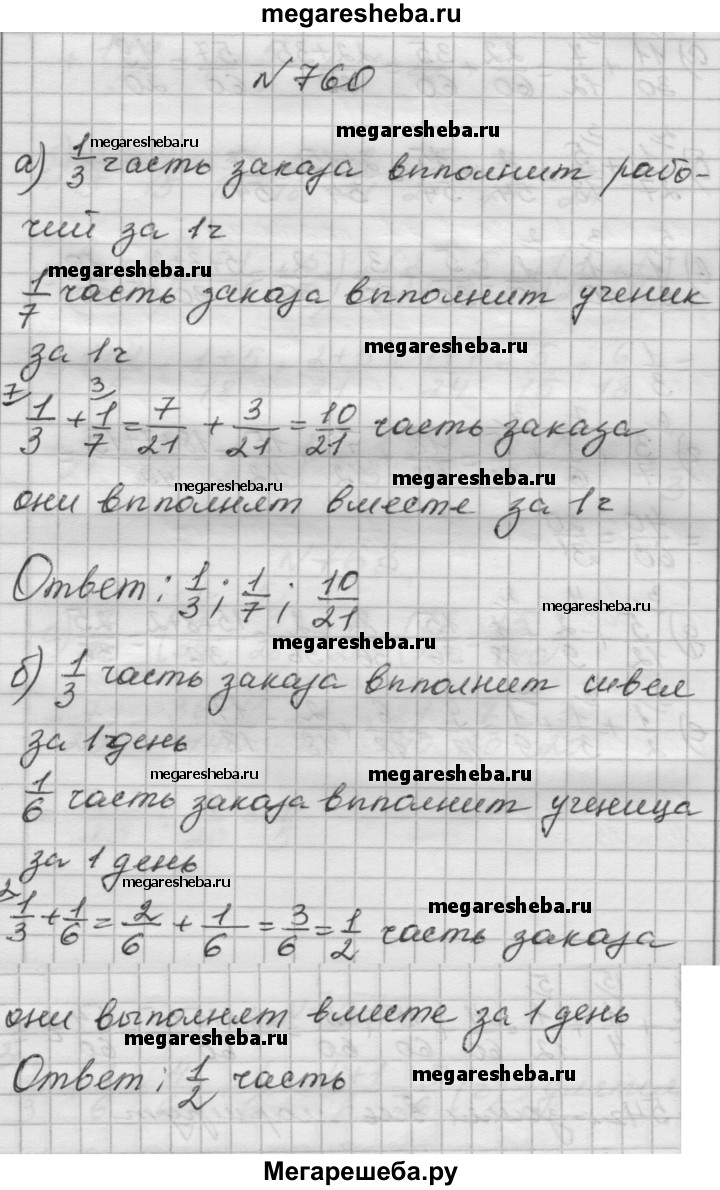 megaresheba.ru
№760
megaresheba.ru
а) 1/3 часть заказа впполнит рабо-
megaresheba.ru
чий за 1ч
megaresheba.ru
1/7 часть заказа впполнит ученик
за 1ч
megaresheba.ru
7 1/3 + 3 1/7 = 7/21 + 3/21 = 10/21 часть заказа
megaresheba.ru
megaresheba.ru
они впполнят вместе за 1ч
Ответ: 1/3; 1/7; 10/21
megaresheba.ru
megaresheba.ru
б) 1/3 часть заказа впполнит швея
за 1 день
megaresheba.ru
megaresheba.ru
1/6 часть заказа впполнит ученица
за 1 день
megaresheba.ru
2 1/3 + 1/6 = 2/6 + 1/6 = 3/6 = 1/2 часть заказа
megaresheba.ru
они выполнят вместе за 1 день
megaresheba.ru
Ответ: 1/2 часть
megaresheba.ru
Мегарешеба.ру